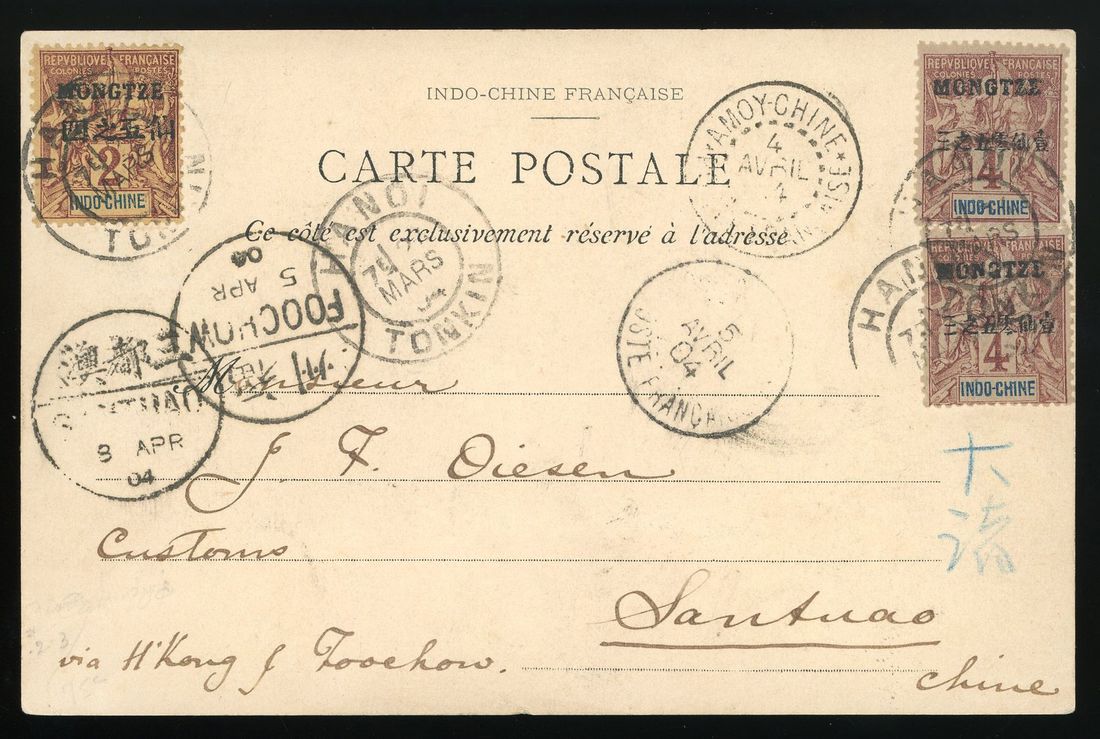 REPVBLIQUE FRANÇAISE
COLONIES POSTES
MONGTZE
仙五之四
2
INDO-CHINE
HANOI
TONKIN
INDO-CHINE FRANÇAISE
CARTE POSTALE
Ce côté est exclusivement réservé à l'adresse
AMOY-CHINE
4
AVRIL
REPVBLIQUE FRANÇAISE
COLONIES POSTES
MONGTZE
壹仙五之三
4
INDO-CHINE
HANOI
MARS
TONKIN
FOOCHOW
5
APR
04
5
AVRIL
04
POSTE FRANÇAISE
MONGTZE
壹仙五之三
4
INDO-CHINE
HAN
三都澳
SANTUAO
8 APR
04
Monsieur
J. F. Oiesen
Customs
Santuao
via H'Kong & Foochow.
Chine